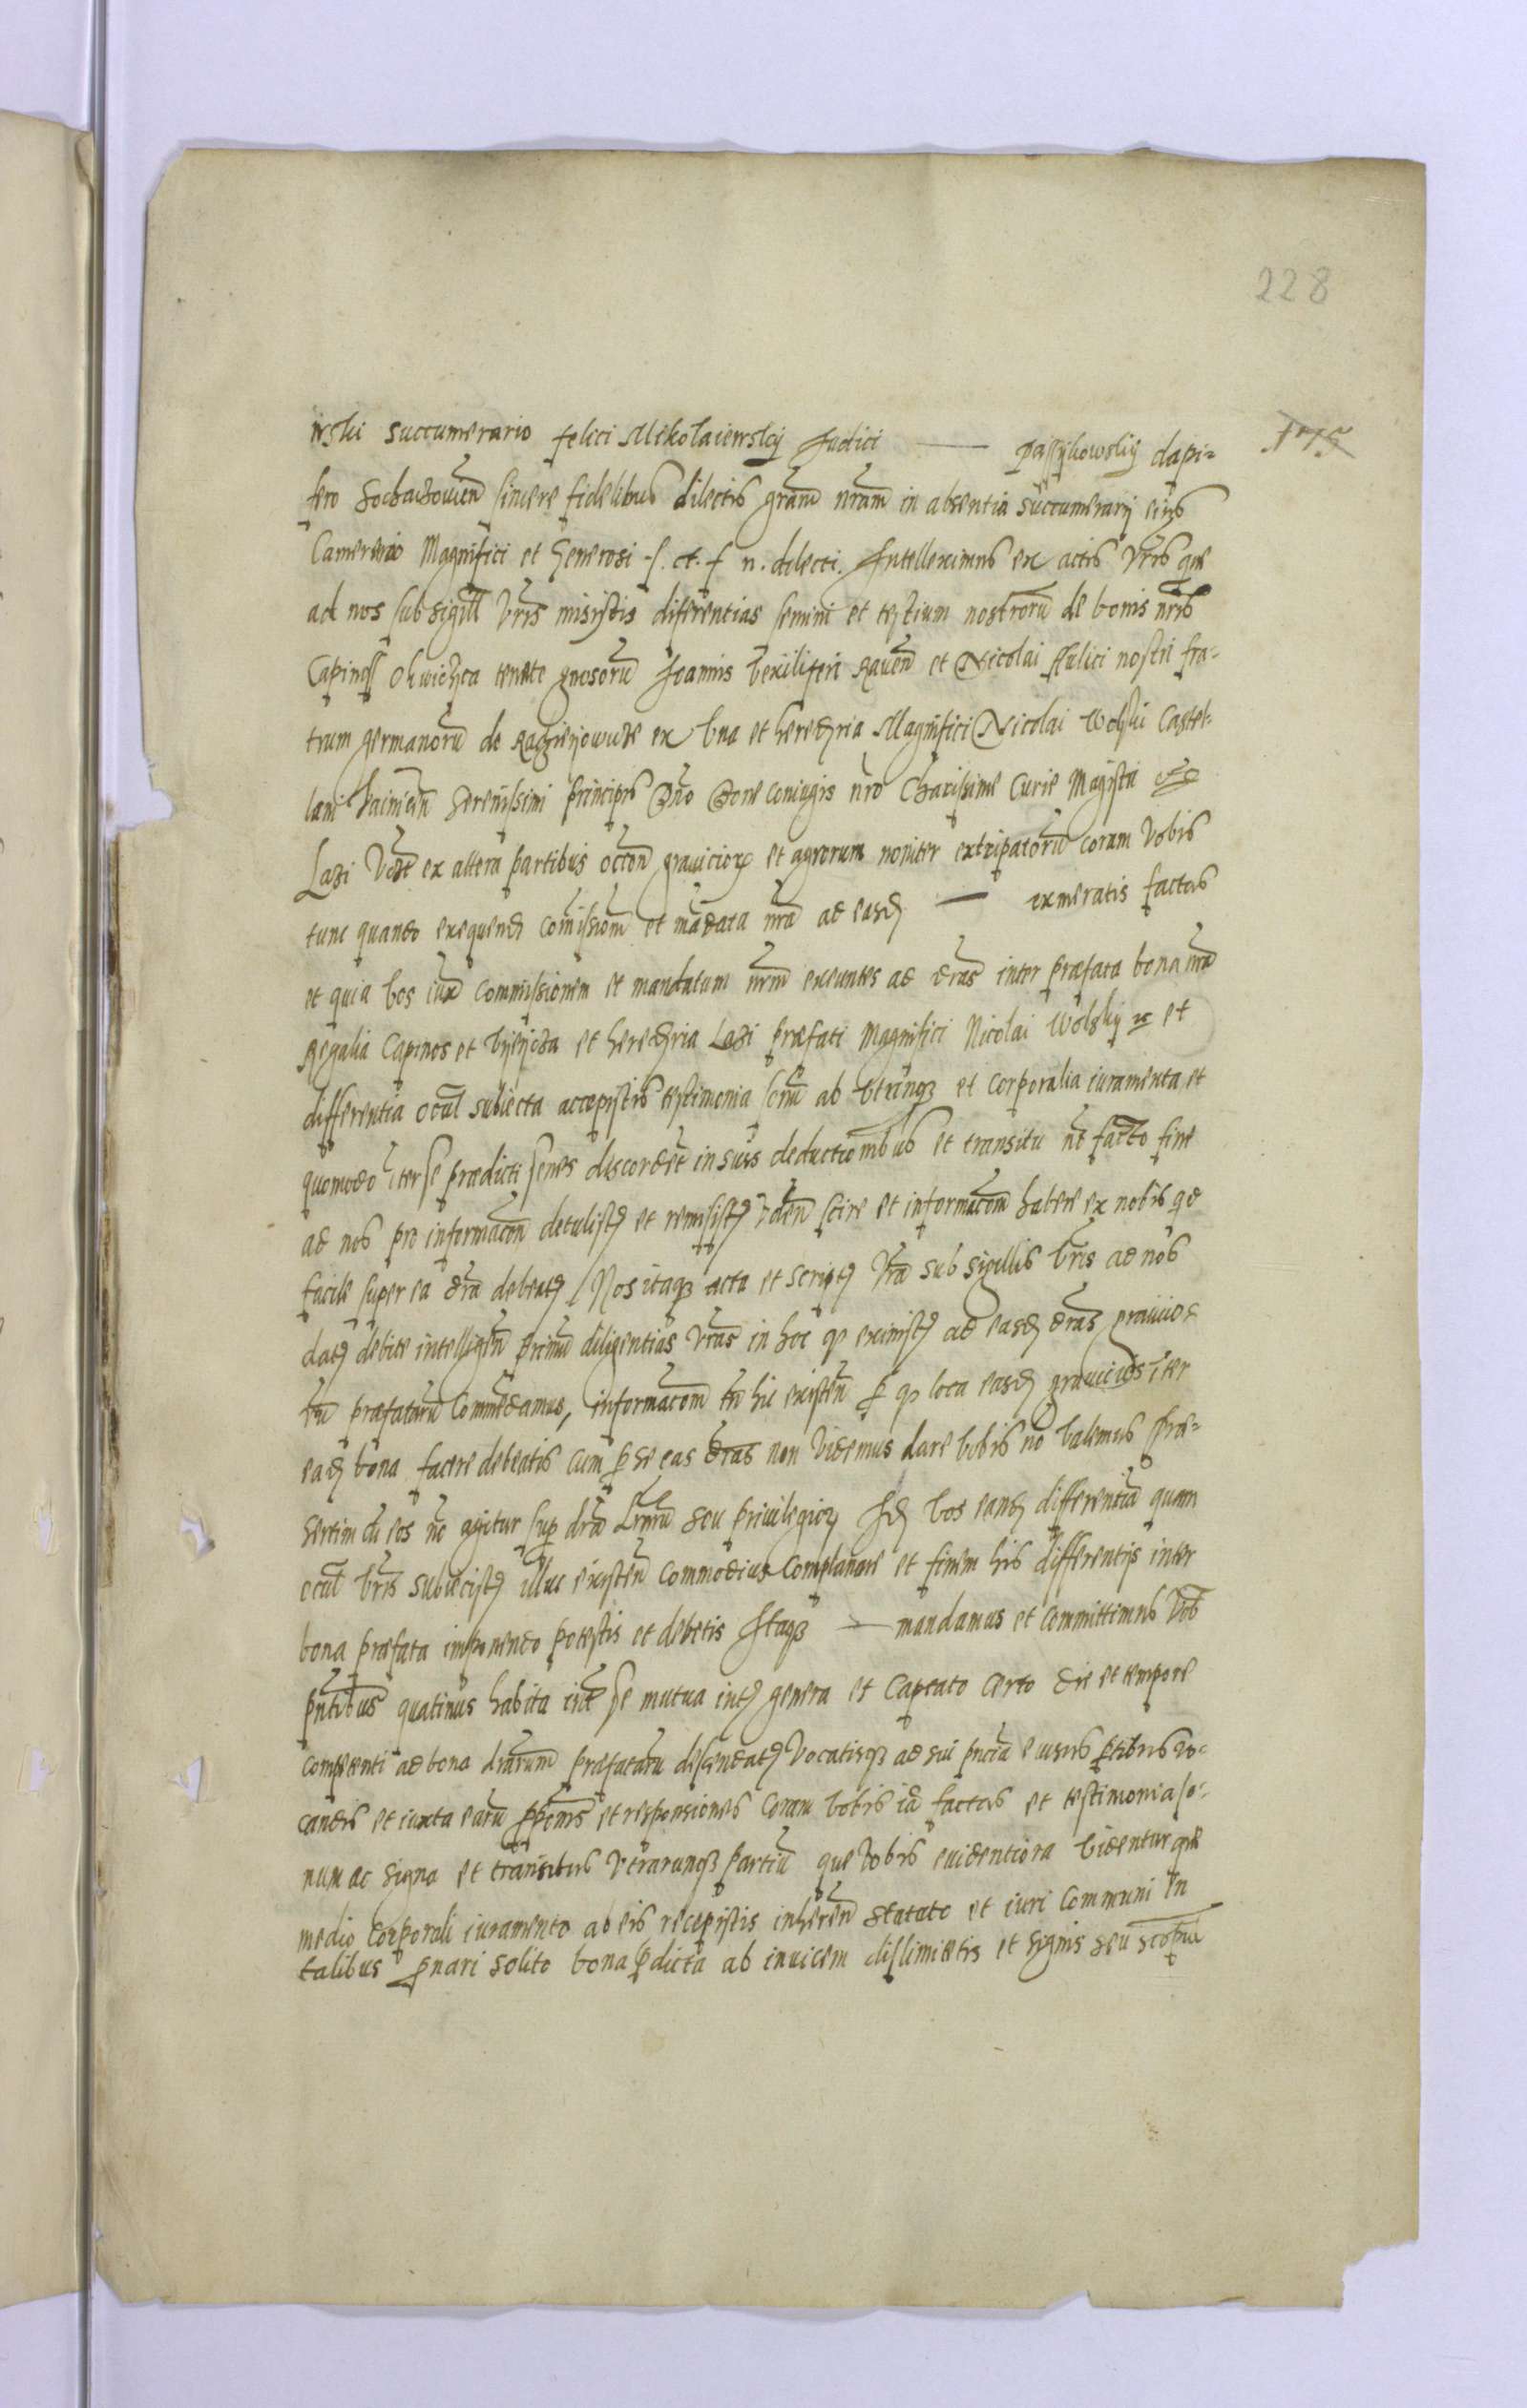 228
175
wski Succumerario felici Mikolaiewsky Judici — Passykowskij dapi-
fero Sochaczouien sincere fidelibus dilectis gram nram in absentia Succumerarij eius
Camerario Magnifici et Generosi s. et. f n. dilecti. Intelleximus ex actis vris que
ad nos sub sigill vris misistis diferentias senum et testium nostroru de bonis nris
Capinoss tenete gnosoru Joannis vexiliferi Rauen et Nicolai nostri fra-
trum germanoru de ex una et hereditria Magnifici Nicolai Wolski Castel-
lani Serenissimi Principis Dno Done Coniugis nro Charissime Curie Magistri
Lazi ex altera partibus graniciarum et agrorum nouiter extirpatoru coram vobis
tunc quando exequend Comissiom et madata nra ad easd — exmeratis factas
et quia vos iux Commissionem et mandatum nrm exeuntes ad dras inter præfata bona nra
Regalia Capinos et et hereditria Lazi præfati Magnifici Nicolai Wolskij et
differentia ocul subiecta accepistis testimonia senu ab utrinq et corporalia iuramenta et
quomodo iter se prædicti senes discordet in suis deductionibus et transitu facto fine
ad nos pro informacon detulistis et remisistis scire et informacom habere ex nobis qd
facile super ea dra debeatis Nos itaq acta et scripta vra sub sigillis vris ad nos
datis debite intelligen primu diligentias vras in hoc q existis ad easd dras graniciar
præfataru Commedamus, informacom tn hic existen p q loca easd granicias iter
ead bona facere debeatis cum p se eas dras non videmus dare vobis no valemus præ-
sertim cu eos ne agitur sup dra lrarum seu priuilegior Sed vos eand differentia quam
ocul vris subiecistis illuc existen commodius complanare et finem his differentijs inter
bona præfata imponendo potestis et debetis Itaq — mandamus et committimus vob
pntibus quatinus habita inte se mutua et captato certo die et tempore
competenti ad bona drarum præfataru descendatis vocatisq ad sui pncia eiusus ptibus vo-
candis et iuxta earu ppones et responsiones coram vobis ia factas et testimonia se-
num ac signa et transitus utrarunq partiu que vobis euidentiora videntur que
medio corporali iuramento ab eis recepistis inheren statuto et iuri Communi in
talibus pnari solito bona pdicta ab inuicem dislimitetis et signis seu scopulis